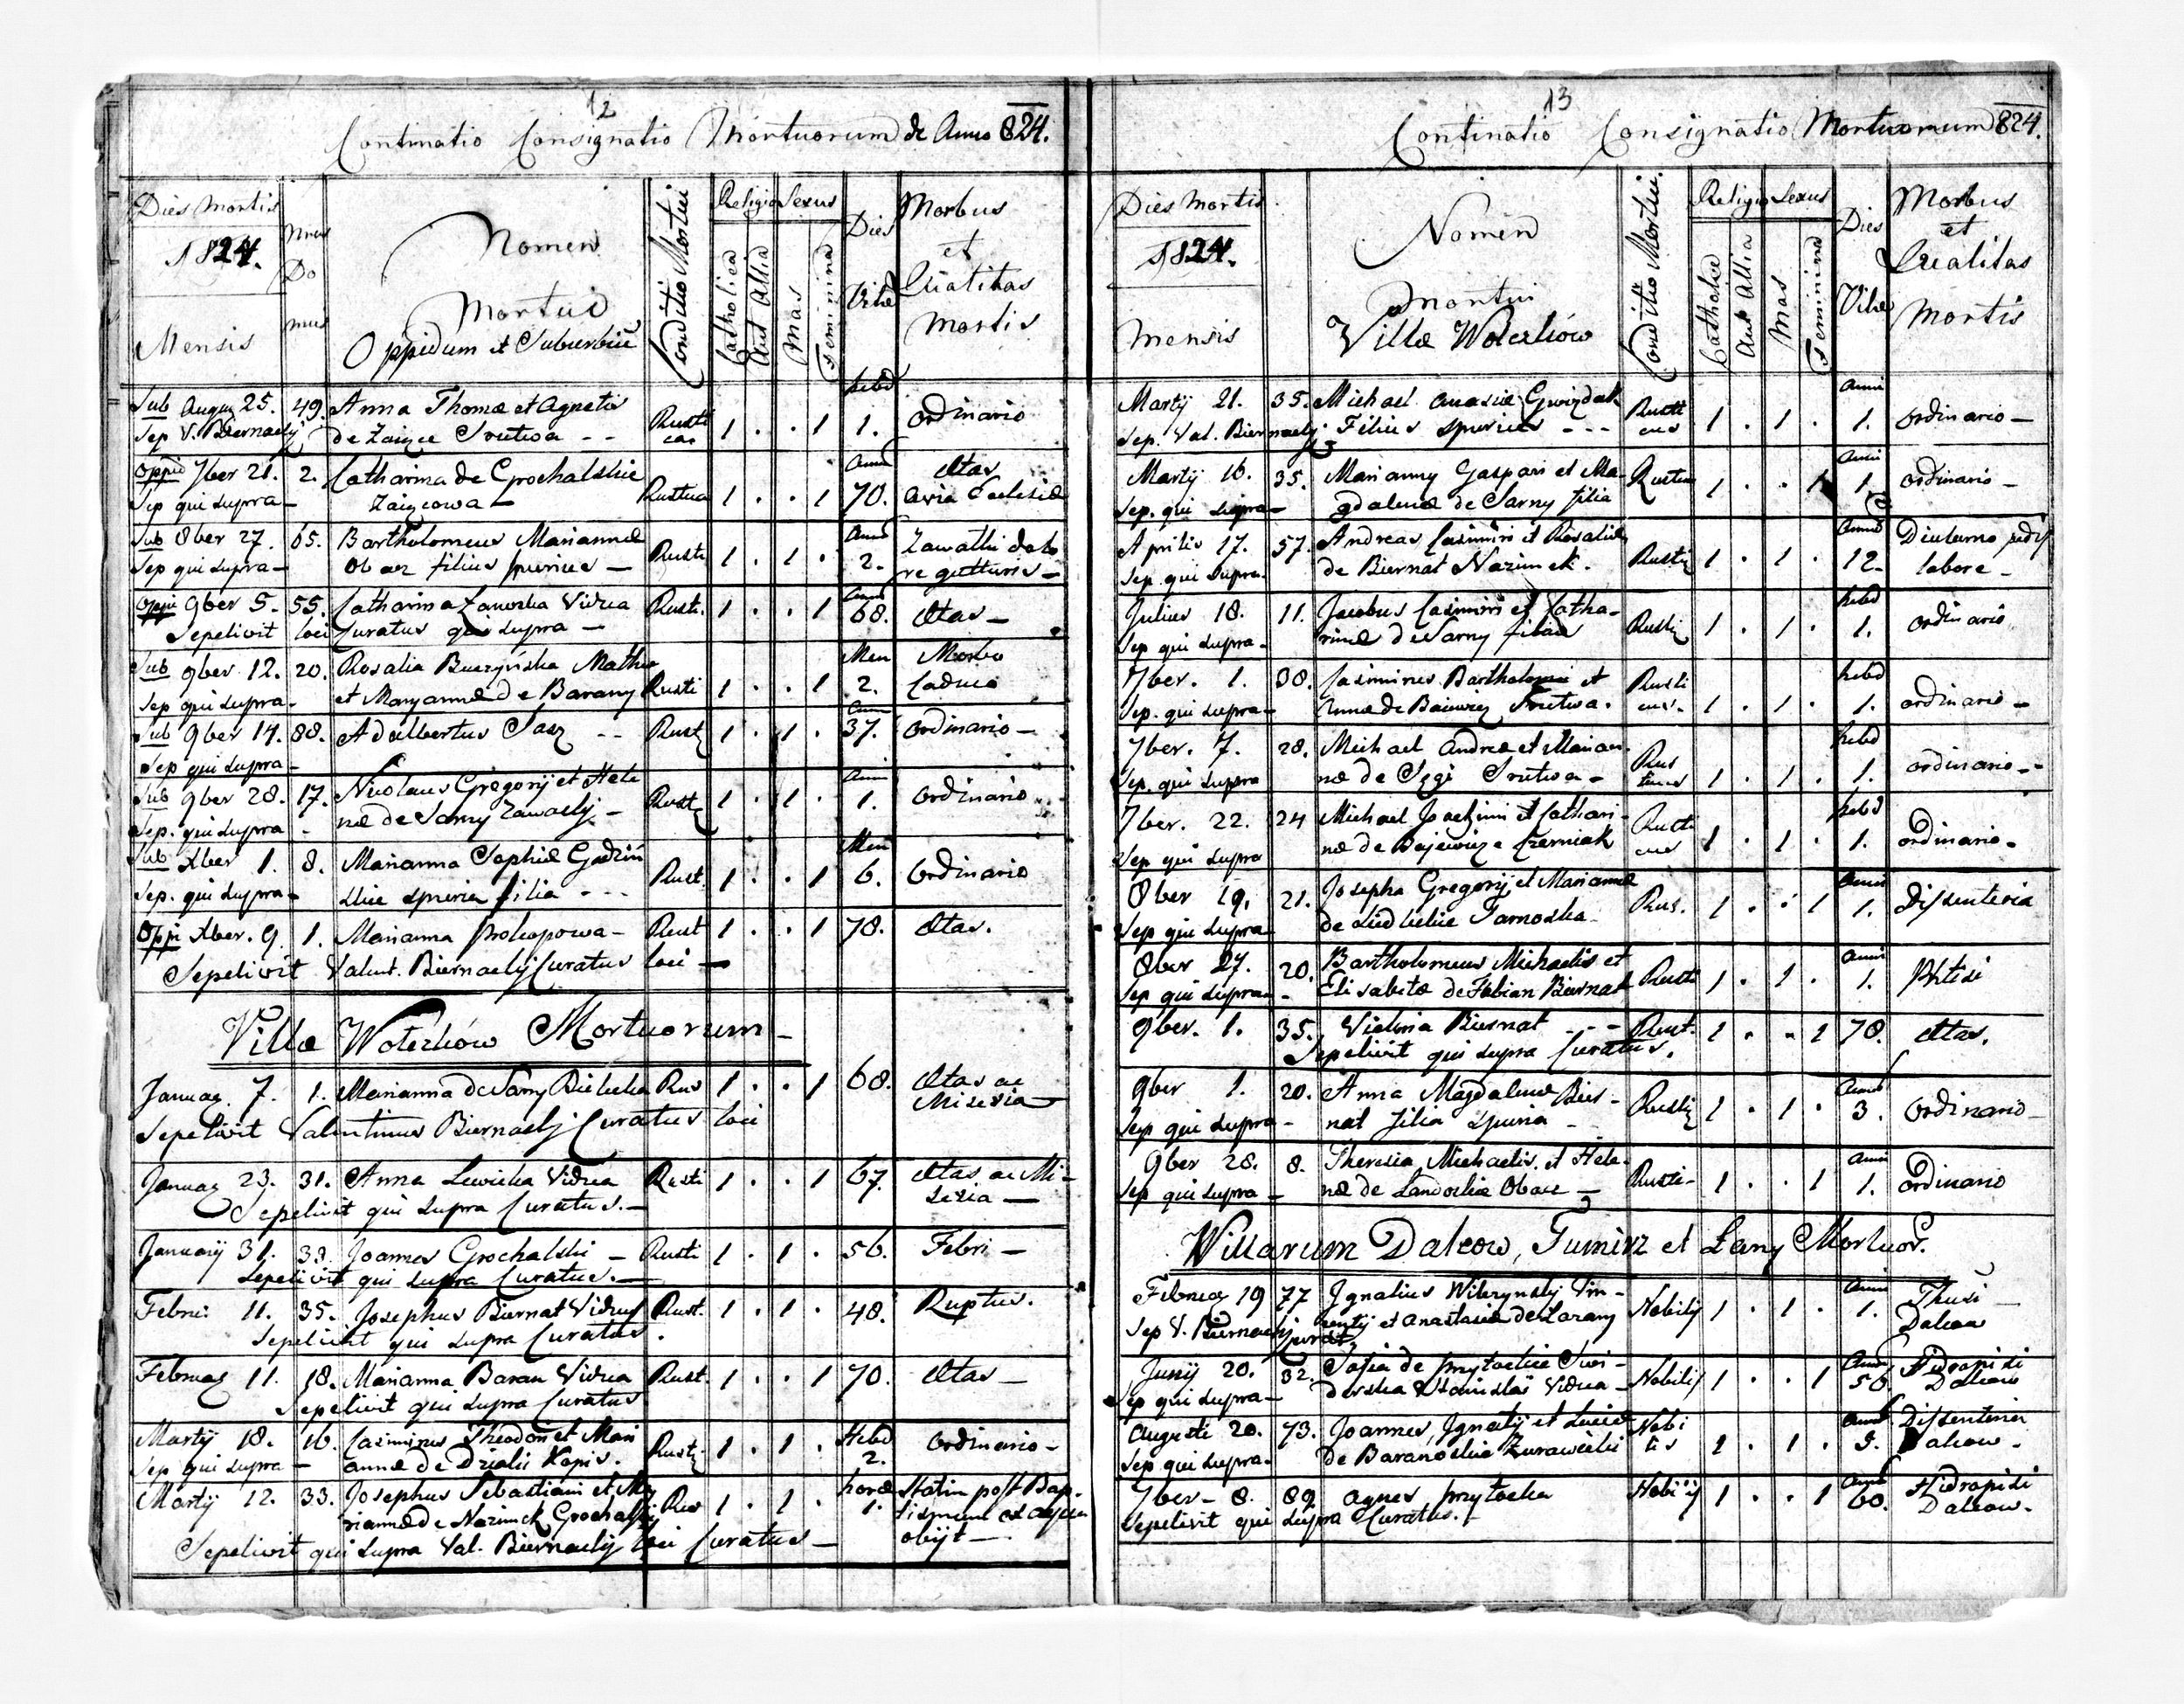 12
Continatio Consignatio Mortuorum de Anno 824.
Dies Mortis
1824.
Mensis
Nrus
Do
mus
Nomen
Mortui
Oppidum et Suburbiu
Conditio Mortui
Religio
Catholica
Aut Allia
Sexus
Mas
Feminina
Dies
Vitæ
Morbus
et
Qualitas
Mortis
Sub Augu 25. 49. Anna Thomæ et Agnetis Rusti 1 . . 1 hebd 1. ordinario
Sep V. Biernacky de Zaięce cas
Oppid 7ber 21. 2. Catharina de Grochalskie Rustica 1 . . 1 Anni 70. Ætas
Sep qui supra Zaięcowa
Sub 8ber 27. 65. Bartholomeus Mariannæ Rusti 1 . 1 . Anni 2.
Sep qui supra Obarz filius spurius re gutturis
Oppi 9ber 5. 55. Catharina Vidua Rusti. 1 . . 1 Anni 68. Ætas
Sepelivit loci Curatus qui supra
Sub 9ber 12. 20. Rosalia Buczyńska Mathia Rusti 1 . . 1 Men 2. Morbo
Sep qui supra et Maryannæ de Barany Caduco
Sub 9ber 14. 88. Adalbertus Sarz Rust 1 . 1 . Anni 37. ordinario
Sep qui supra
Sub 9ber 28. 17. Nicolaus Gregorij et Hele Rust 1 . 1 . Anni 1. ordinario
Sep. qui supra næ de Sarny Zawacky
Sub Xber 1. 8. Marianna Sophiæ Gadziń Rust. 1 . . 1 Men 6. ordinario
Sep. qui supra skie spuria filia
Oppi Xber. 9. 1. Marianna Prokopowa Rust 1 . . 1 78. Ætas.
Sepelivit Valent. Biernacky Curatus loci
Villæ Woterków Mortuorum
Januar. 7. 1. Marianna de Sarny Bielecka Rus 1 . . 1 68. Ætas ac
Miseria
Sepelivit Valentinus Biernacky Curatus loci
Januar 23. 31. Anna Lewicka Vidua Rusti 1 . . 1 67. Ætas ac Mi
seria
Sepelivit qui supra Curatus.
Januarij 31. 33. Joannes Grochalski Rusti 1 . 1 . 56. Febri
Sepelivit qui supra Curatus.
Febru: 11. 35. Josephus Biernat Viduus Rust. 1 . 1 . 48. Ruptus.
Sepelivit qui supra Curatus.
Februar 11. 18. Marianna Baran Vidua Rust. 1 . . 1 70. Ætas
Sepelivit qui supra Curatus
Martij 18. 16. Casimirus Theodori et Mari Rusti 1 . 1 . Hebd 2. ordinario
Sep. qui supra annæ de Kopis.
Martij 12. 33. Josephus Sebastiani et Ma Rus 1 . 1 . horæ 1. Statim post Bap
riannæ de Nazimek Grochalski tismum ex aqua
Sepelivit qui supra Val. Biernacky loci Curatus obijt
13
Continatio Consignatio Mortuorum 824.
Dies Mortis
1824.
Mensis
Nomen
Mortui
Villæ Woterków
Conditio Mortui.
Religio
Catholica
Aut Allia
Sexus
Mas
Feminina
Dies
Vitæ
Morbus
et
Qualitas
Mortis
Martij 21. 35. Michael Gwizdak Rusti 1 . 1 . Anni 1. ordinario
Sep. Val. Biernacky Filius spurius cus
Martij 16. 35. Marianny Gaspari et Ma Rustica 1 . . 1 Anni 1. ordinario
Sep. qui supra gdalenæ de Sarny filia
Aprilis 17. 57. Andreas Casimiri et Rosaliæ Rusti 1 . 1 . Anni 12. Diuturno
Sep qui supra. de Biernat Nazimek. labore
Julius 18. 11. Jacobus Casimiri et Catha Rusti 1 . 1 . hebd 1. ordinario
Sep qui supra. rinæ de Sarny
7ber. 1. 38. Casimirus Bartholomei et Rusti 1 . 1 . hebd 1. ordinario
Sep. qui supra Annæ de cus.
7ber. 7. 28. Michael Andreæ et Marian Rus 1 . 1 . hebd 1. ordinario
Sep. qui supra næ de ticus
7ber. 22. 24 Michael Joachimi et Cathari Rusti 1 . 1 . hebd 1. ordinario
Sep qui supra næ de Czerniak cus
8ber 19. 21. Josepha Gregorij et Mariannæ Rus. 1 . . 1 Anni 1. Dissenteria
Sep qui supra de Tarnoska
8ber 27. 20. Bartholomeus Michaelis et Rusti 1 . 1 . Anni 1. Phtisi
Sep qui supra Elisabetæ de Fabian Biernat
9ber. 1. 35. Biernat Rust. 1 . . 1 78. Ætas.
Sepelivit qui supra Curatus.
9ber 1. 20. Anna Magdalenæ Bier Rusti 1 . 1 . Anni 3. Ordinario
Sep qui supra nat filia spuria
9ber 28. 8. Theresia Michaelis et Hele Rusti 1 . . 1 Anni 1. Ordinario
Sep qui supra næ de Obarz
Villarum Dalcow, Tumirz et Łany Mortuor.
Februar 19 77 Ignatius Wilczynsky Vin Nobilis 1 . 1 . Anni 1. Thusi
Sep V. Biernacky curat. centij et Anastasiæ de Dalcow
Junij 20. 32. Sofia de Przytockie Swi Nobilis 1 . . 1 Anni 50 Hidropisi
Sep qui supra derska Stanislai Vidua Dalcow
Augusti 20. 73. Joannes, Ignatij et Luciæ Nobi 1 . 1 . Anni 3. Dissenteria
Sep qui supra. de Baranoskie Zurawiecki lis Dalcow.
7ber 8. 89. Agnes Przytocka Nobilis 1 . . 1 Anni 60. Hidropisi
Sepelivit qui supra Curatus. Dalcow.